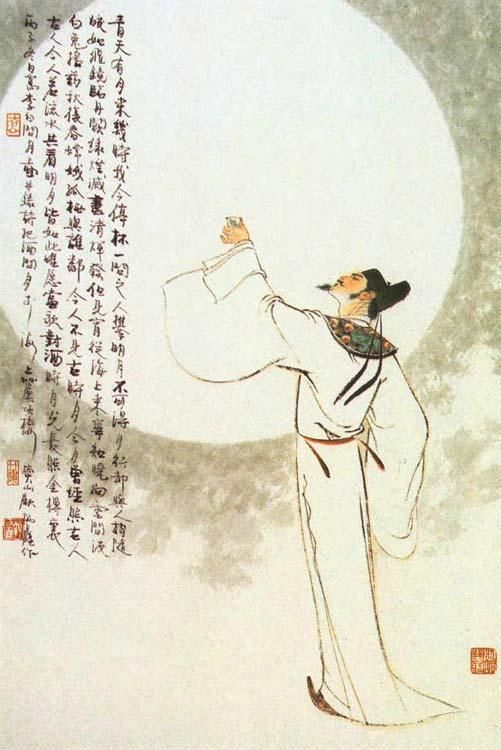 青天有月來幾時我今停杯一問之人攀明月不可得月行却與人相隨
皎如飛鏡臨丹闕綠煙滅盡清輝發但見宵從海上來寧知曉向雲間沒
白兔搗藥秋復春嫦娥孤栖與誰鄰今人不見古時月今月曾經照古人
古人今人若流水共看明月皆如此唯愿當歌對酒時月光長照金樽裏
丙子冬日寫李白問月圖并錄詩把酒問月於海上